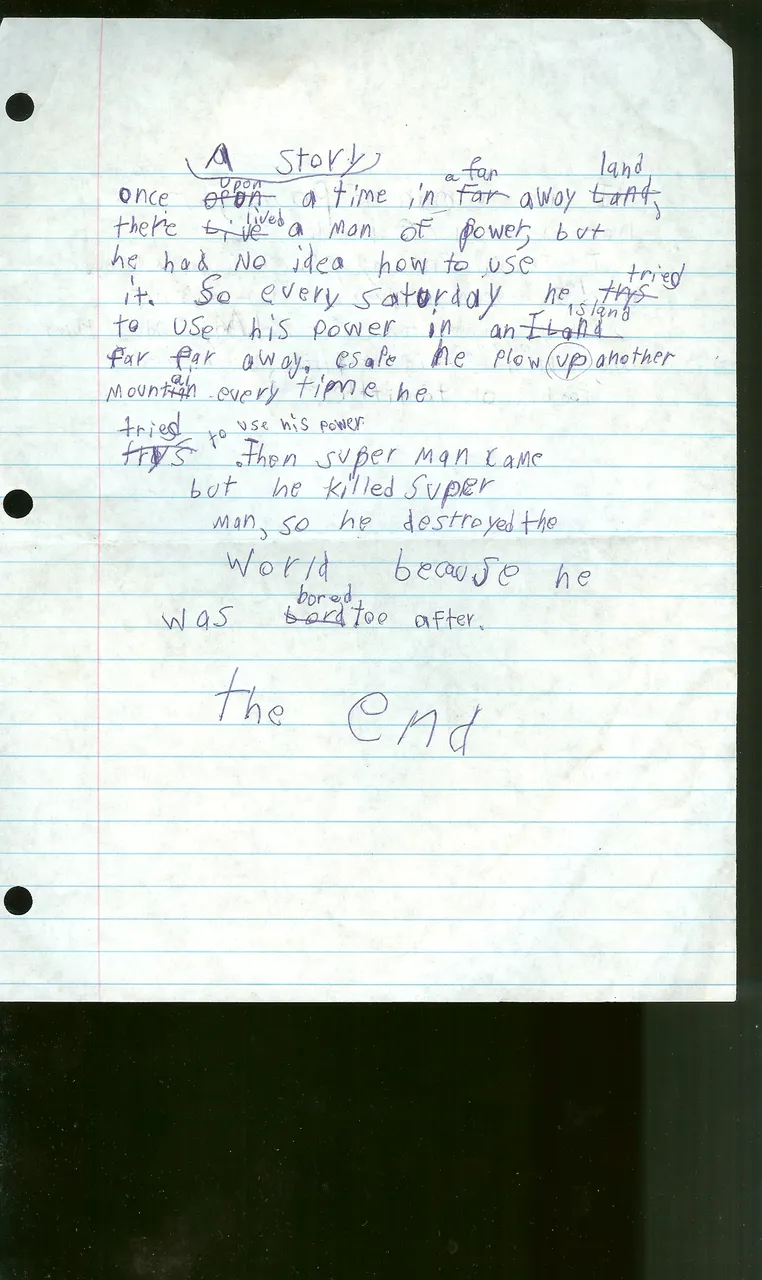 A story
once ofon upon a time in a far far away Land, land
there Live lived a man of power, but
he had No idea how to use
it. So every saturday he trys tried
to use his power in an ILand island
far far away. esafe he plow up another
mountin ai every time he
trys tried to use his power
.Then super man came
but he killed super
man, so he destroyed the
world because he
was bord bored too after.
the end